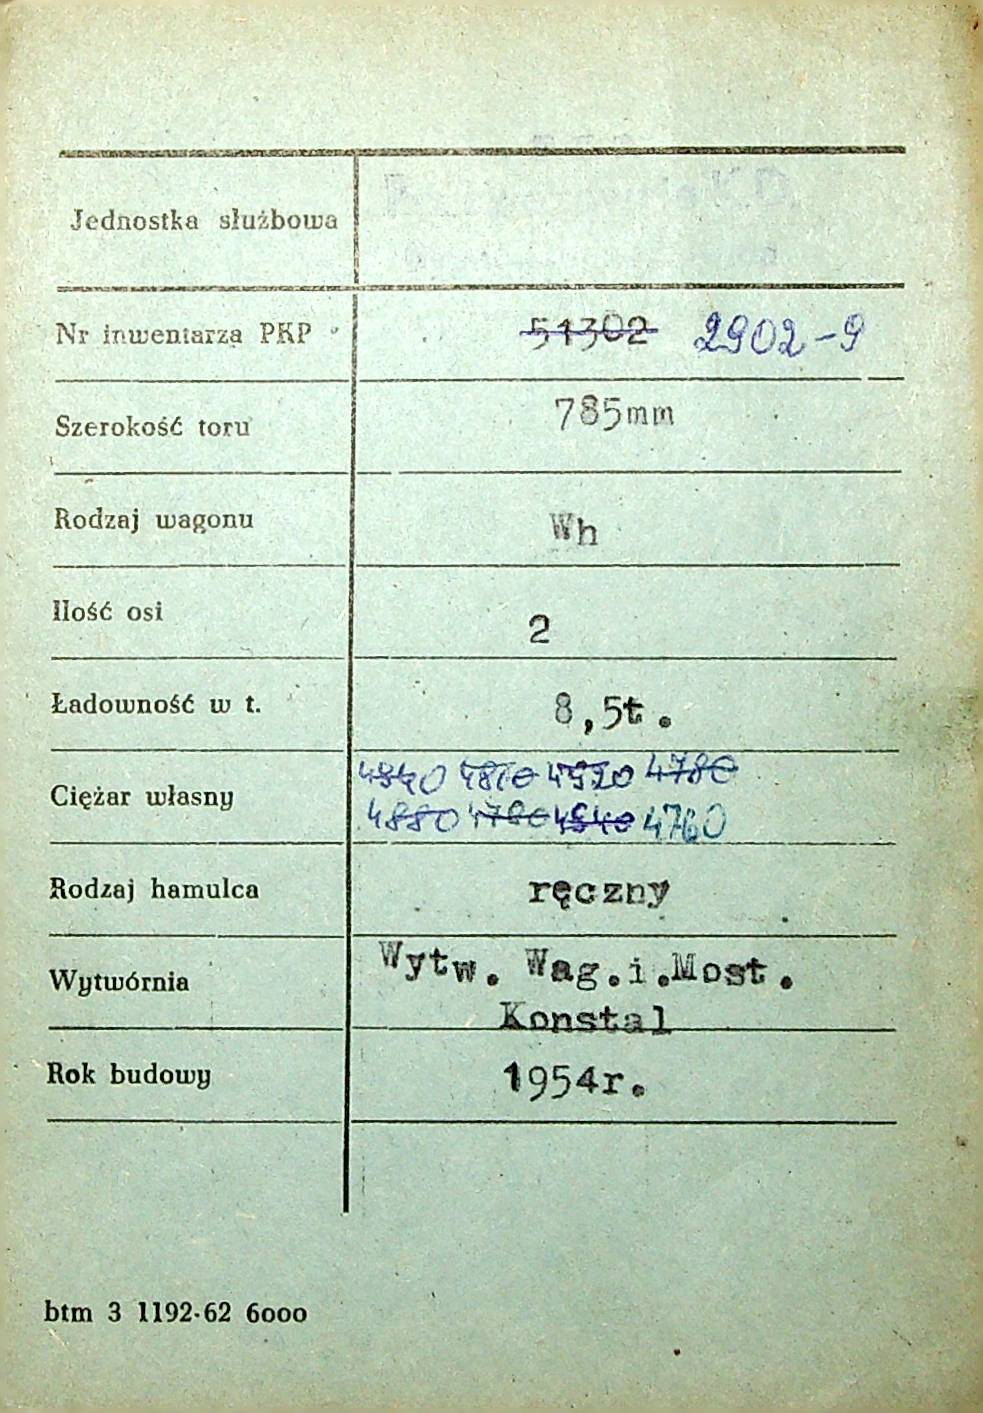 Jednostka służbowa
Nr inwentarza PKP 51302 2902-9
Szerokość toru 785mm
Rodzaj wagonu Wh
Ilość osi 2
Ładowność w t. 8,5t.
Ciężar własny 4840 4810 4920 4780
4880 4780 4840 4760
Rodzaj hamulca ręczny
Wytwórnia Wytw. Wag.i.Most.
Konstal
Rok budowy 1954r.
btm 3 1192-62 6000